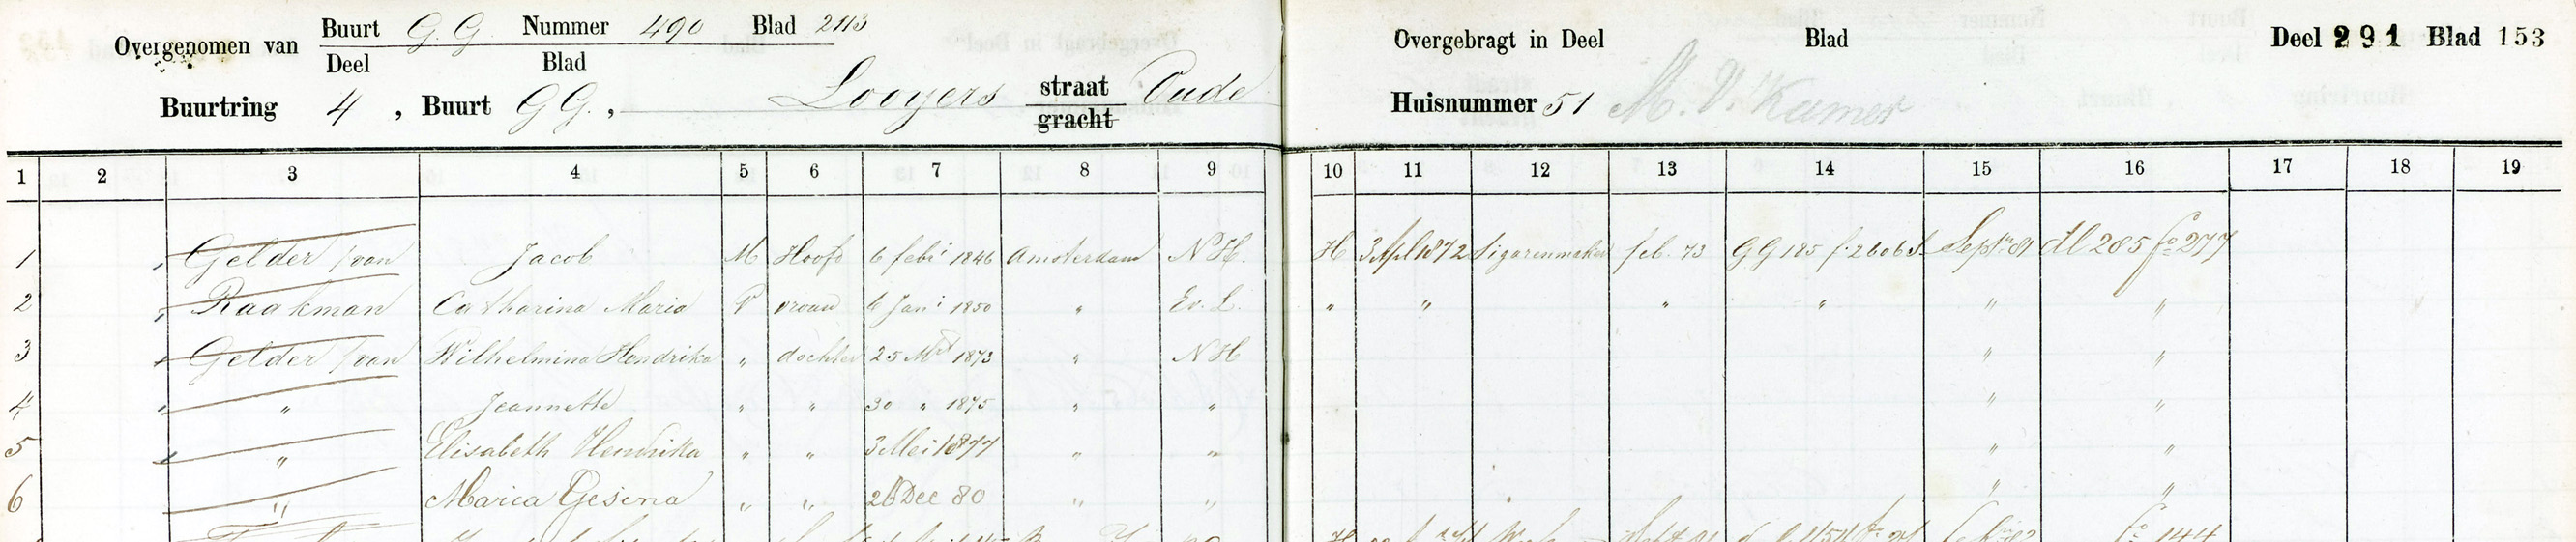 Overgenomen van Buurt G.G. Nummer 490 Blad 2113
Deel Blad
Buurtring 4, Buurt GG., Looyers straat Oude
gracht
Overgebragt in Deel Blad Deel 291 Blad 153
Huisnummer 51 M. V. Kamer
1 2 3 4 5 6 7 8 9 10 11 12 13 14 15 16 17 18 19
1 Gelder /van Jacob M Hoofd 6 febr 1846 Amsterdam N.H. H 3 Apl 1872 Sigarenmaker feb. 73 GG 185 f 2606 Sept 81 dl 285 fo 277
2 Raakman Catharina Maria V vrouw 6 Jani 1850 " Ev. L. " " " " " "
3 Gelder /van Wilhelmina Hendrika " dochter 25 Mrt 1873 " NH " "
4 " Jeannette " " 30 " 1875 " " " "
5 " Elisabeth Hendrika " " 3 Mei 1877 " " " "
6 " Maria Gesina " " 26 Dec 80 " " " "